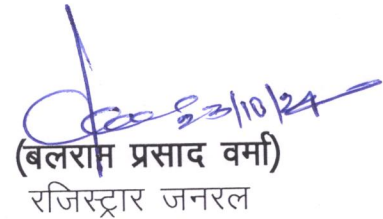 23/10/24
(बलराम प्रसाद वर्मा)
रजिस्ट्रार जनरल